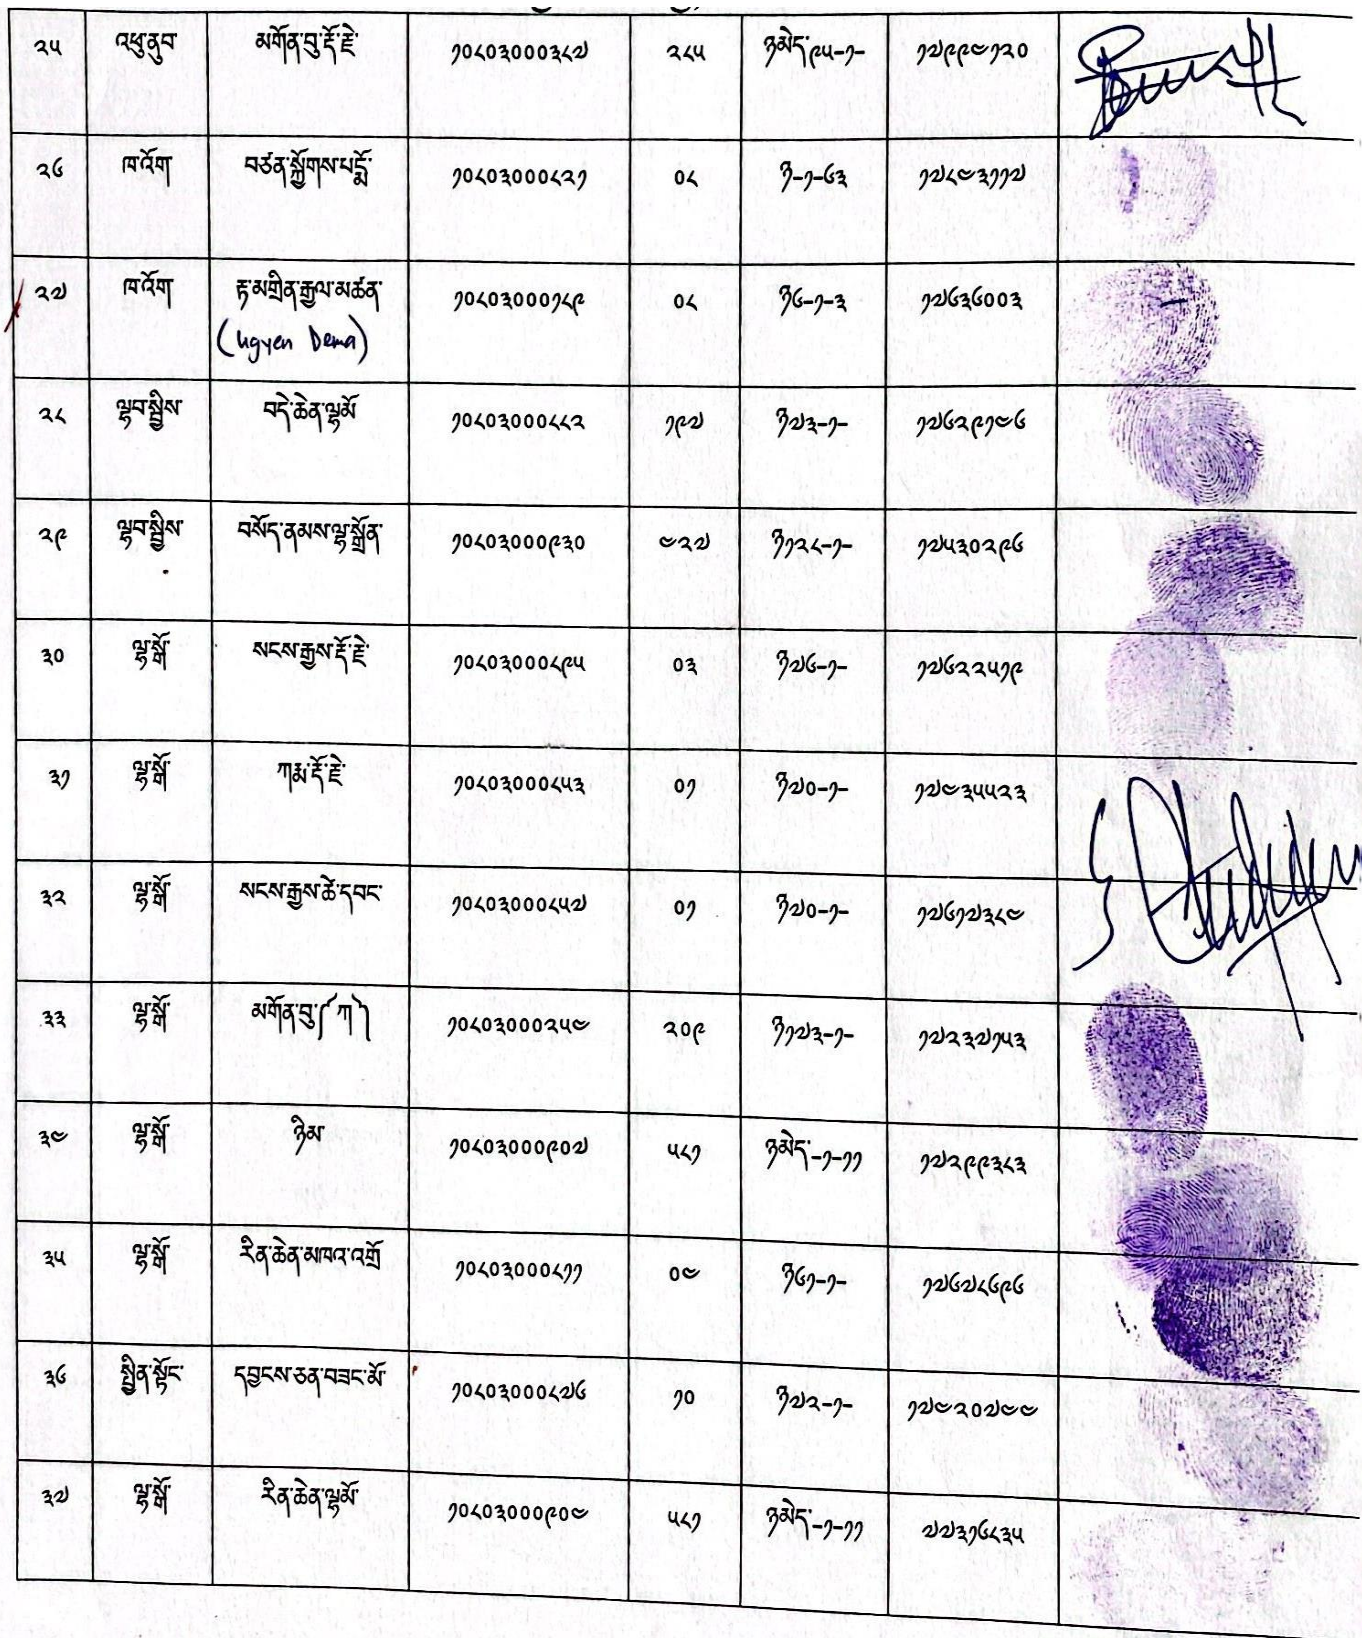 ༢༥ འཕུ་ནུབ་ མགོནབུ་རྡོ་རྗེ་ ༡༠༨༠༣༠༠༠༣༨༧ ༢༨༥ ཉམེད་༩༥-༡- ༡༧༩༩༤༡༢༠
༢༦ ཁ་འོག་ བཙན་སྐྱོགས་པདྨོ་ ༡༠༨༠༣༠༠༠༨༢༡ ༠༨ ཉ-༡-༦༣ ༡༧༨༤༣༡༡༧
༢༧ ཁ་འོག་ རྟ་མགྲིན་རྒྱལ་མཚན་ ༡༠༨༠༣༠༠༠༡༨༩ ༠༨ ཉ༦-༡-༣ ༡༧༦༣༦༠༠༣
(Ugyen Dema)
༢༨ ལྷབ་སྦྱིས་ བདེ་ཆེན་ལྷམོ ༡༠༨༠༣༠༠༠༨༨༢ ༡༩༧ ཉ༧༣-༡- ༡༧༦༢༩༡༤༦
༢༩ ལྷབ་སྦྱིས་ བསོད་ནམས་ལྷ་སྒྲོན་ ༡༠༨༠༣༠༠༠༩༣༠ ༤༢༧ ཉ༡༢༨-༡- ༡༧༥༣༠༢༩༦
༣༠ ལྷ་སྒོ་ སངས་རྒྱས་རྡོ་རྗེ་ ༡༠༨༠༣༠༠༠༨༩༥ ༠༣ ཉ༧༦-༡- ༡༧༦༢༢༥༡༩
༣༡ ལྷ་སྒོ་ ཀརྨ་རྡོ་རྗེ་ ༡༠༨༠༣༠༠༠༨༥༣ ༠༡ ཉ༧༠-༡- ༡༧༤༣༥༥༢༣
༣༢ ལྷ་སྒོ་ སངས་རྒྱས་ཚེ་དབང་ ༡༠༨༠༣༠༠༠༨༥༧ ༠༡ ཉ༧༠-༡- ༡༧༦༡༧༣༨༤
༣༣ ལྷ་སྒོ་ མགོནབུ་༼ཀ༽ ༡༠༨༠༣༠༠༠༢༥༤ ༢༠༩ ཉ༡༧༣-༡- ༡༧༢༣༧༡༥༣
༣༤ ལྷ་སྒོ་ ཉིམ་ ༡༠༨༠༣༠༠༠༩༠༧ ༥༨༡ ཉམེད་-༡-༡༡ ༡༧༢༩༩༣༨༣
༣༥ ལྷ་སྒོ་ རིན་ཆེན་མཁའ་འགྲོ ༡༠༨༠༣༠༠༠༨༡༡ ༠༤ ཉ༦༡-༡- ༡༧༦༧༨༦༩༦
༣༦ སྦྱིན་སྟོང་ དབྱངས་ཅན་བཟང་མོ་ ༡༠༨༠༣༠༠༠༨༧༦ ༡༠ ཉ༧༢-༡- ༡༧༤༢༠༧༤༤
༣༧ ལྷ་སྒོ་ རིན་ཆེན་ལྷམོ་ ༡༠༨༠༣༠༠༠༩༠༤ ༥༨༡ ཉམེད་-༡-༡༡ ༧༧༣༡༦༨༣༥